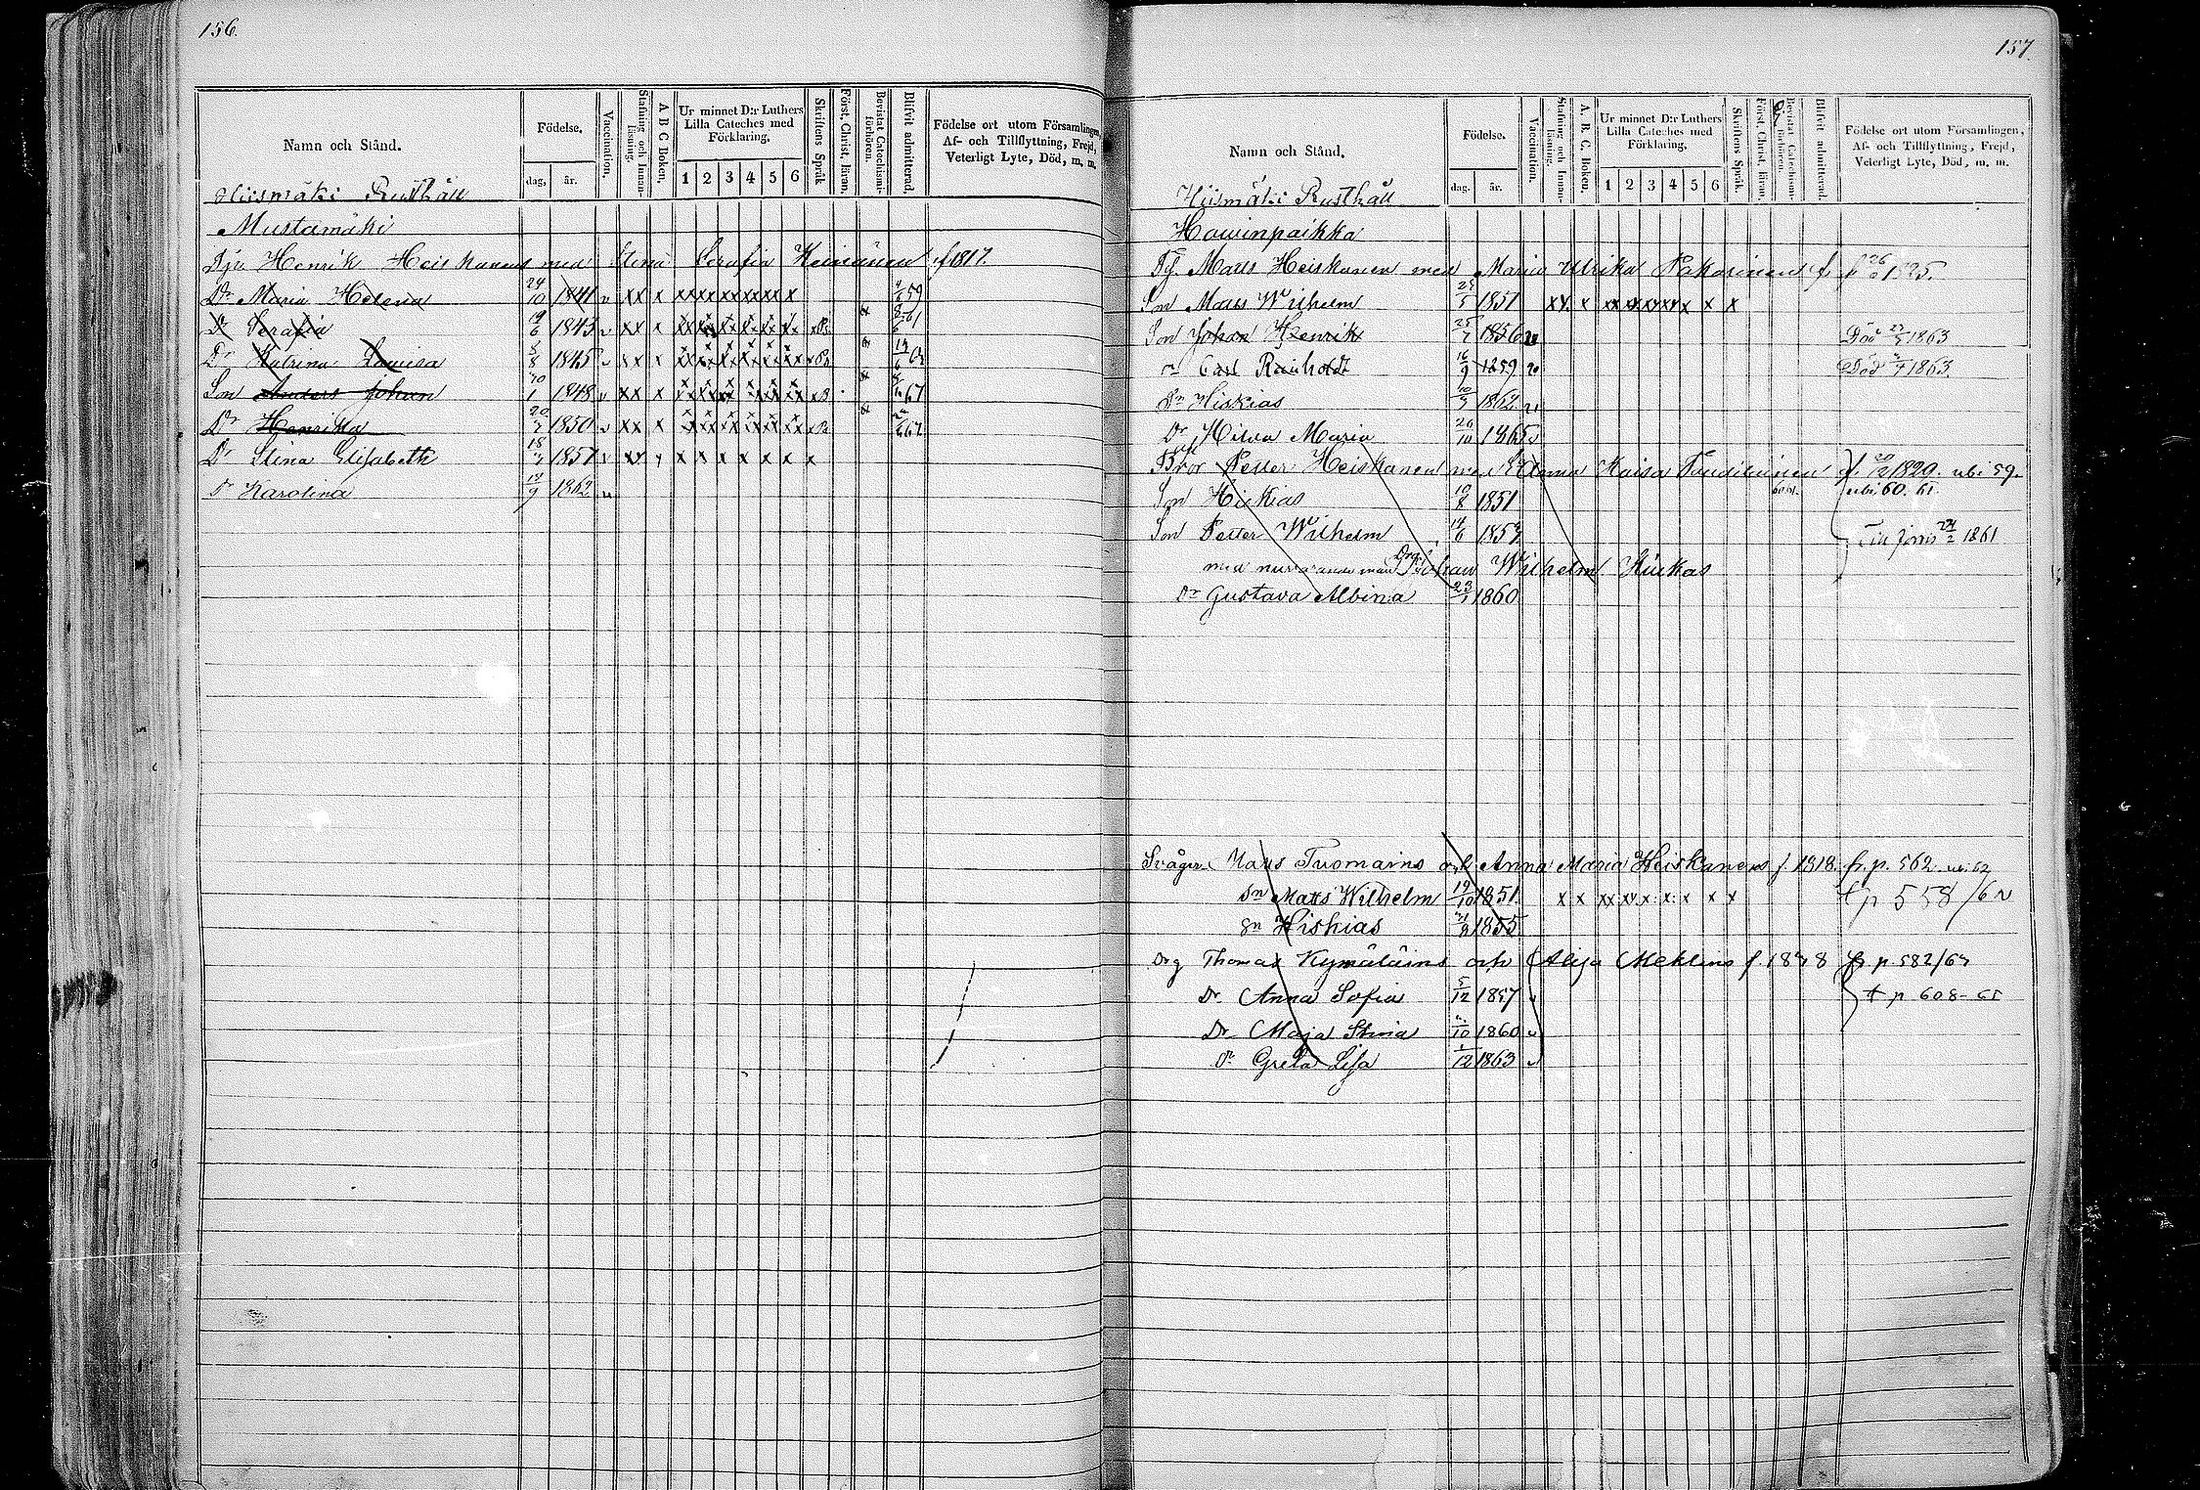 156.
Namn och Stånd.
Födelse.
dag.
år.
Vaccination.
Stafning och Innanläsning.
A B C Boken.
Ur minnet D:r Luthers Lilla Cateches med Förklaring.
1 2 3 4 5 6
Skriftens Språk
Först. Christ. läran.
Bevistat Catechismiförhören.
Blifvit admitterad.
Födelse ort utom Församlingen,
Af- och Tillflyttning, Frejd,
Veterligt Lyte, Död, m. m.
Hiismäki Rusthåll
Mustamäki
Henrik Heiskanen med Stina Serafia Heinänen f 1817.
Dr Maria Helena 24/10 1841 v xx x 59
Dr Serafia 19/6 1843 v xx x
Dr Katrina Lovisa 1845 v xx x
Son Anders Johan 1848 v xx x 67
Dr Henrika 1850 v xx x 67
Dr Stina Elisabeth 1857 v xx x x x x x x x
Dr Karolina 1862 v
157.
Namn och Stånd.
Födelse.
dag.
år.
Vaccination.
Stafning och Innanläsning.
A. B. C. Boken.
Ur minnet D:r Luthers
Lilla Cateches med
Förklaring.
1 2 3 4 5 6
Skriftens Språk.
Först. Christ. läran.
Bevistat Catechismiförhören.
Blifvit admitterad.
Födelse ort utom Församlingen,
Af- och Tillflyttning, Frejd,
Veterligt Lyte, Död, m. m.
Hiismäki Rusthåll
Hawinpaikka
Matts Heiskanen med Maria Ulrika Pakarinen f 1825.
Son Matts Wilhelm 1851 xx x
Son Johan Henrik 25/7 1856 v Död 1863
Carl Reinholdt 16/9 1859 v Död 1863.
Sn Hiskias 1862 v
Dr Hilda Maria 20/10 1865 v
Bror Petter Heiskanen med Anna Kaisa f. 1820. ubi 59.
ubi 60. 61.
Son Hiskias 1851
Son Petter Wilhelm 14/6 1857 1861
med nuvarande man Johan Wilhelm
Dr Gustava Albina 1860
Svåger Matts Tuomains och Anna Maria Heiskanen f. 1818. fr. p. 562 ubi 62
Sn Matts Wilhelm 19/10 1851. x x
p 558/62
Sn Hiskias 1855
Thomas Kymäläins och f. 1838 fr p. 582/64
Dr. Anna Sofia 5/12 1857 v t p 608-65
Dr Maja Stina 1860 v
Dr Greta Lisa 1/12 1863 v